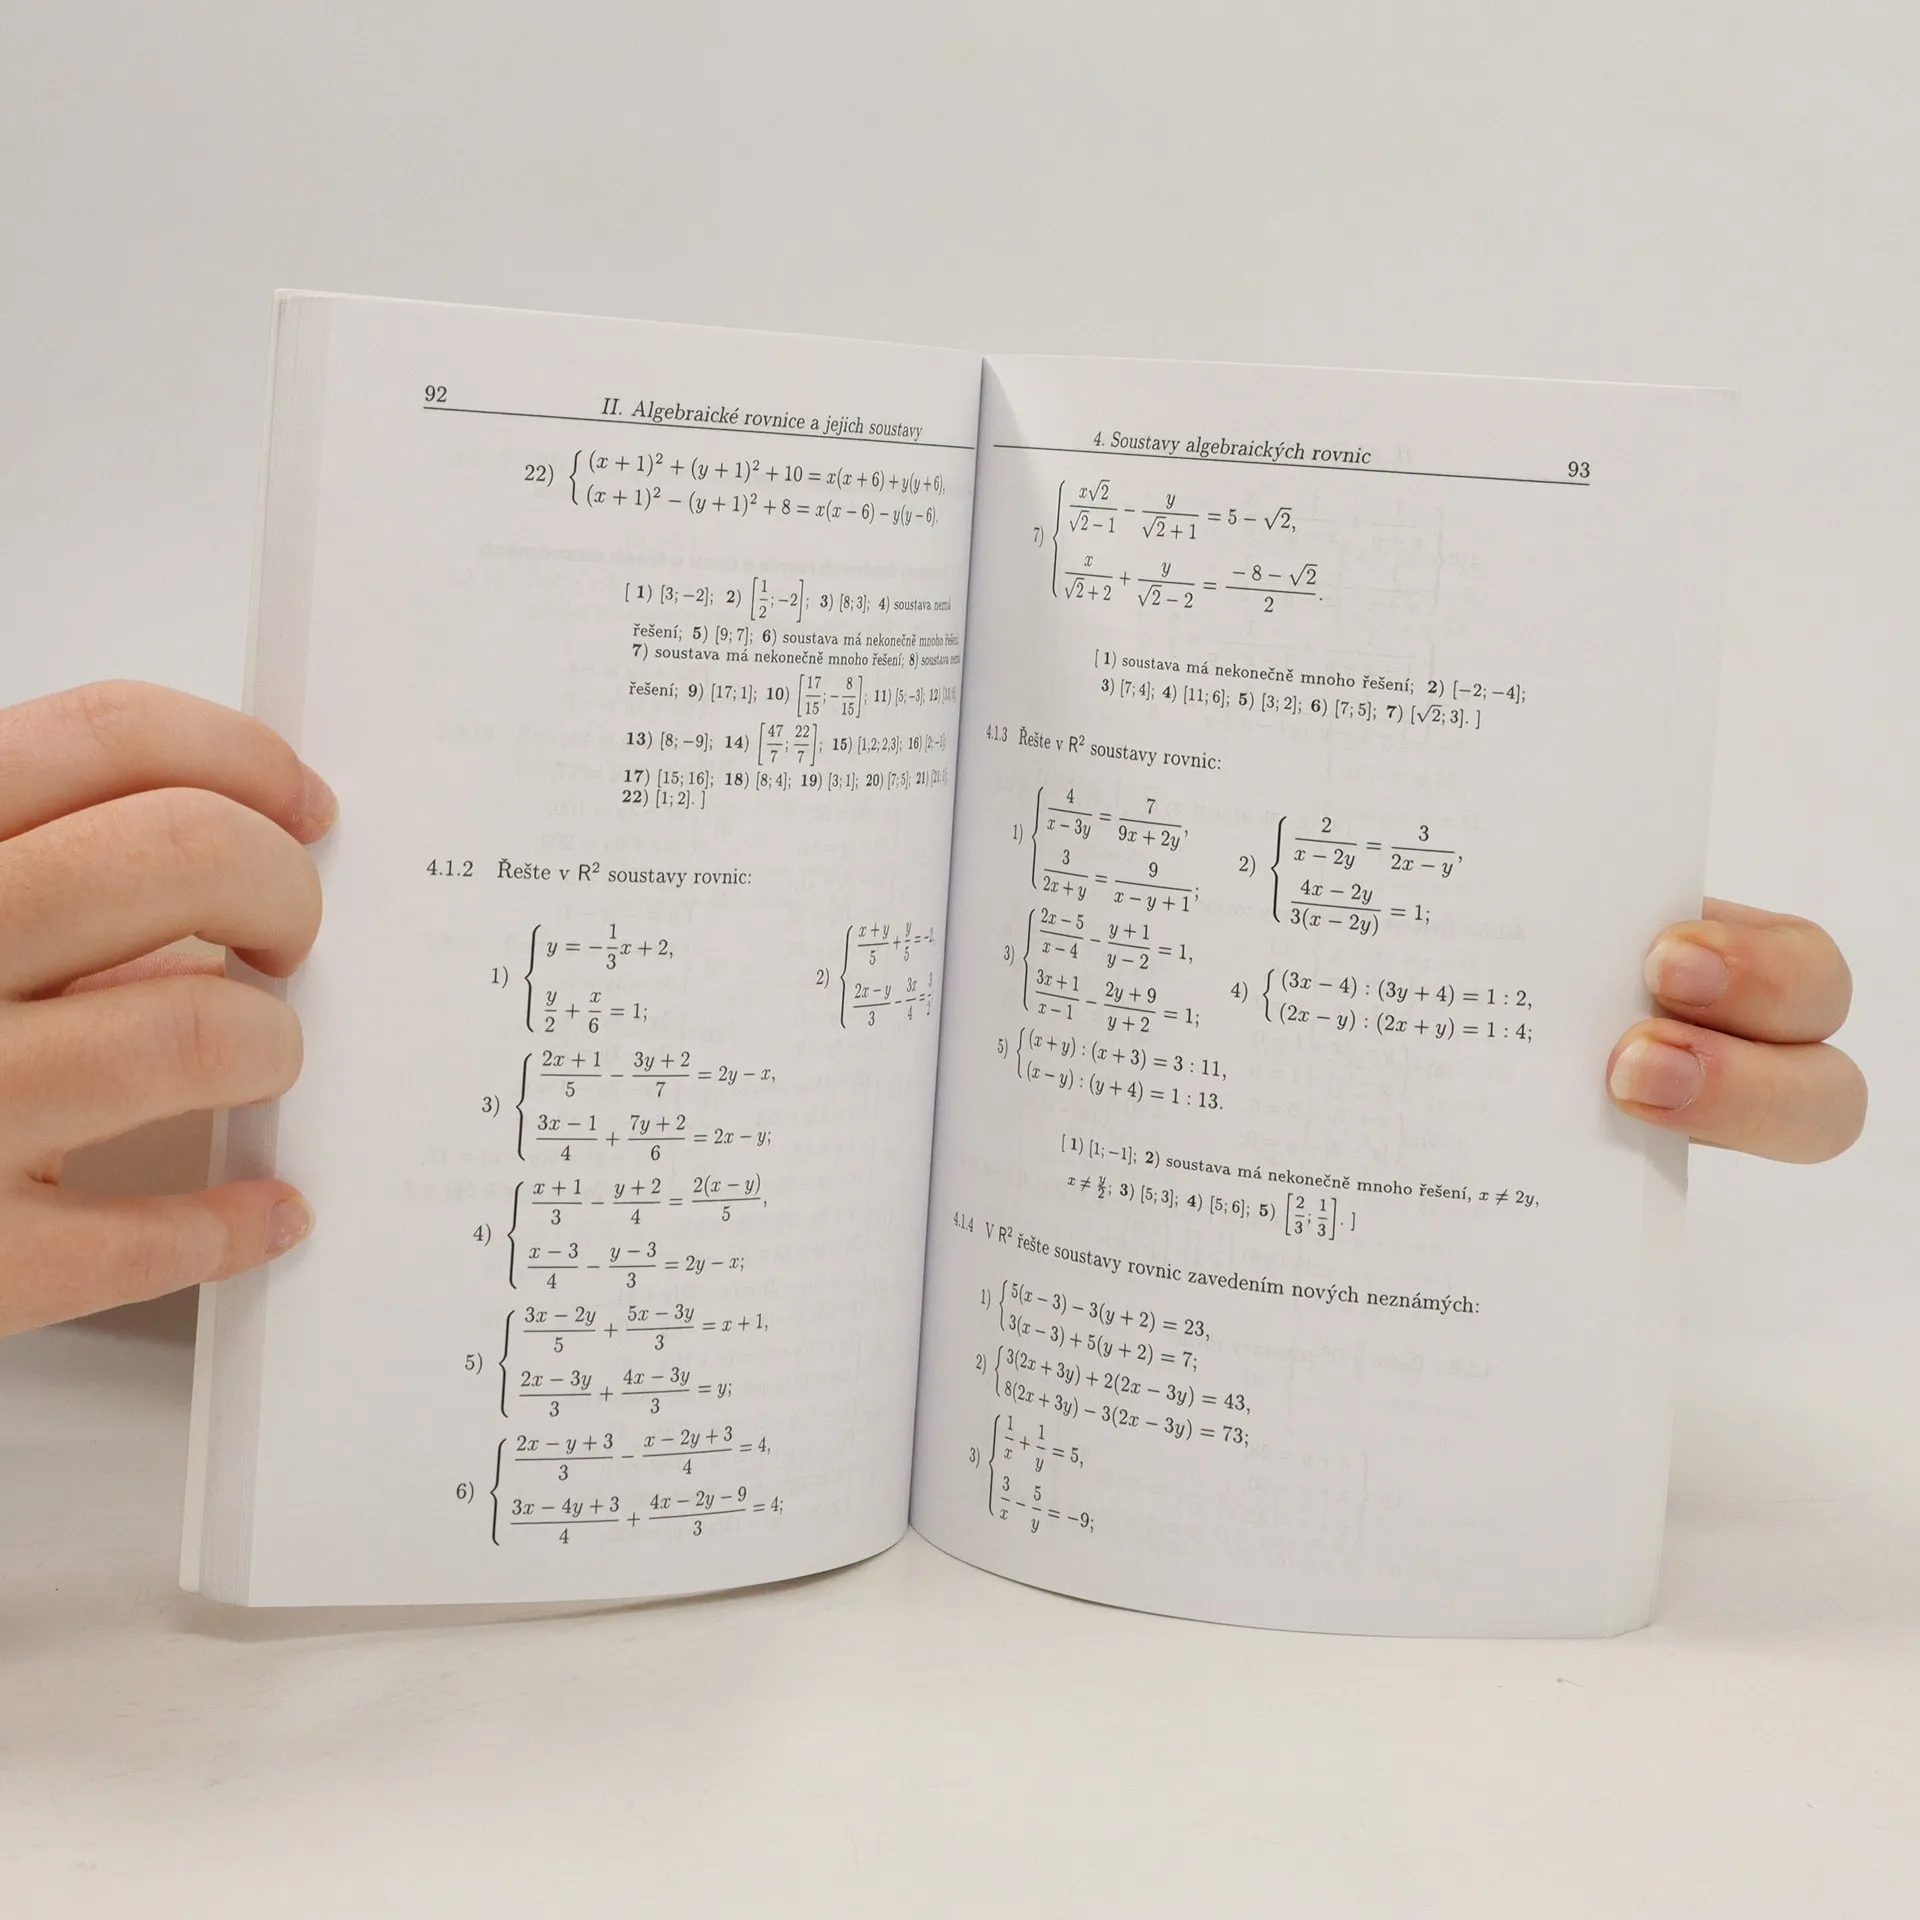 92
II. Algebraické rovnice a jejich soustavy
22) { (x + 1)² + (y + 1)² + 10 = x(x + 6) + y(y + 6),
(x + 1)² − (y + 1)² + 8 = x(x − 6) − y(y − 6).
[ 1) [3; −2]; 2) [1/2; −2]; 3) [8; 3]; 4) soustava nemá
řešení; 5) [9; 7]; 6) soustava má nekonečně mnoho řešení;
7) soustava má nekonečně mnoho řešení; 8) soustava nemá
řešení; 9) [17; 1]; 10) [17/15; −8/15]; 11) [5; −3]; 12)
13) [8; −9]; 14) [47/7; 22/7]; 15) [1,2; 2,3]; 16) [2; −1];
17) [15; 16]; 18) [8; 4]; 19) [3; 1]; 20) [7; 5]; 21)
22) [1; 2]. ]
4.1.2 Řešte v R² soustavy rovnic:
1) { y = −1/3 x + 2,
y/2 + x/6 = 1;
2) { (x + y)/5 + y/5 = −2,
(2x − y)/3 − 3x/4 = 3/2
3) { (2x + 1)/5 − (3y + 2)/7 = 2y − x,
(3x − 1)/4 + (7y + 2)/6 = 2x − y;
4) { (x + 1)/3 − (y + 2)/4 = 2(x − y)/5,
(x − 3)/4 − (y − 3)/3 = 2y − x;
5) { (3x − 2y)/5 + (5x − 3y)/3 = x + 1,
(2x − 3y)/3 + (4x − 3y)/3 = y;
6) { (2x − y + 3)/3 − (x − 2y + 3)/4 = 4,
(3x − 4y + 3)/4 + (4x − 2y − 9)/3 = 4;
4. Soustavy algebraických rovnic
93
7) { x√2/(√2 − 1) − y/(√2 + 1) = 5 − √2,
x/(√2 + 2) + y/(√2 − 2) = (−8 − √2)/2.
[ 1) soustava má nekonečně mnoho řešení; 2) [−2; −4];
3) [7; 4]; 4) [11; 6]; 5) [3; 2]; 6) [7; 5]; 7) [√2; 3]. ]
4.1.3 Řešte v R² soustavy rovnic:
1) { 4/(x − 3y) = 7/(9x + 2y),
3/(2x + y) = 9/(x − y + 1);
2) { 2/(x − 2y) = 3/(2x − y),
(4x − 2y)/(3(x − 2y)) = 1;
3) { (2x − 5)/(x − 4) − (y + 1)/(y − 2) = 1,
(3x + 1)/(x − 1) − (2y + 9)/(y + 2) = 1;
4) { (3x − 4) : (3y + 4) = 1 : 2,
(2x − y) : (2x + y) = 1 : 4;
5) { (x + y) : (x + 3) = 3 : 11,
(x − y) : (y + 4) = 1 : 13.
[ 1) [1; −1]; 2) soustava má nekonečně mnoho řešení, x ≠ 2y,
x ≠ y/2; 3) [5; 3]; 4) [5; 6]; 5) [2/3; 1/3]. ]
4.1.4 V R² řešte soustavy rovnic zavedením nových neznámých:
1) { 5(x − 3) − 3(y + 2) = 23,
3(x − 3) + 5(y + 2) = 7;
2) { 3(2x + 3y) + 2(2x − 3y) = 43,
8(2x + 3y) − 3(2x − 3y) = 73;
3) { 1/x + 1/y = 5,
3/x − 5/y = −9;